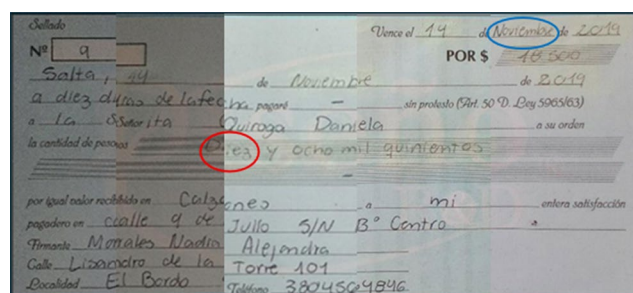 Sellado Vence el 14 de Noviembre de 2019
Nº 9 POR $ 18.500
Salta, 44 de Noviembre de 2019
a diez dias de la fecha pagaré — sin protesto (Art. 50 D. Ley 5965/63)
a La Señorita Quiroga Daniela a su orden
la cantidad de pesos Diez y ocho mil quinientos
—
por igual valor recibido en Calzones a mi entera satisfacción
pagadero en calle 9 de Julio S/N B° Centro a
Firmante Morales Nadia Alejandra
Calle Lisandro de la Torre 101
Localidad El Bordo Teléfono 3804564846